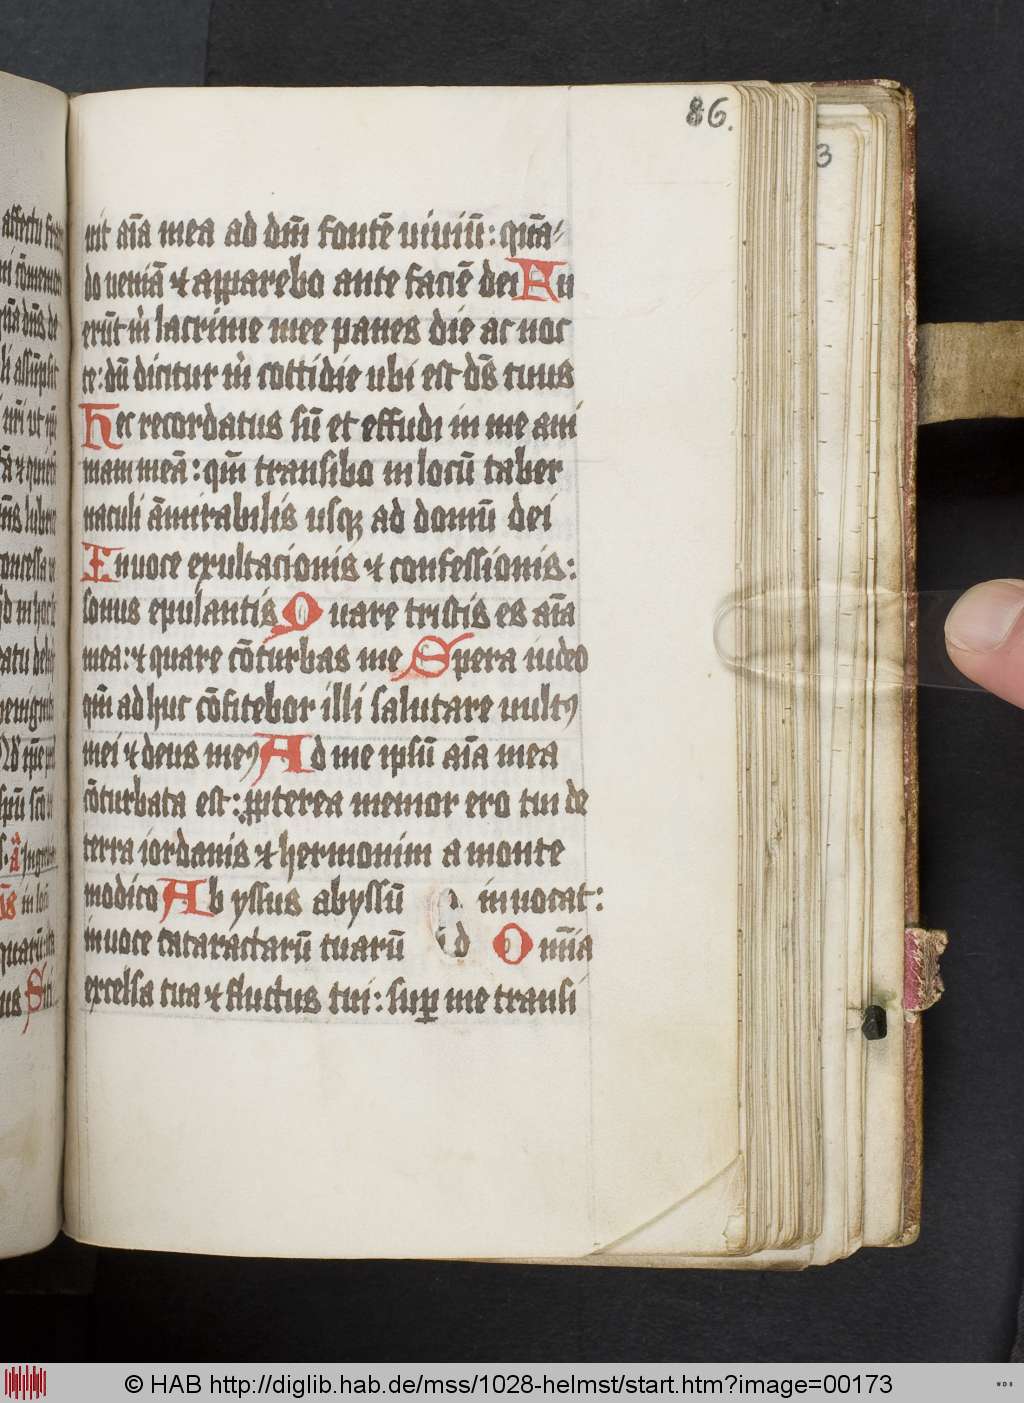 86.
3
uit aīa mea ad dm̄ fontē uiuū: qn̄a⸗
do ueniā ⁊ apparebo ante faciē dei Fu
erūt m̄ lacrime mee panes die ac noc
te: dū dicitur m̄ cottidie ubi est dš tuus
Hec recordatus sū et effudi in me ani
mam meā: qm̄ transibo in locū taber
naculi āmirabilis usqꝫ ad domū dei
In uoce exultacionis ⁊ confessionis:
sonus epulantis Quare tristis es aīa
mea: ⁊ quare cōturbas me Spera in deo
qm̄ ad huc cōfitebor illi salutare uultꝰ
mei ⁊ deus meꝰ Ad me ipsū aīa mea
cōturbata est: ꝓpterea memor ero tui de
terra iordanis ⁊ hermonim a monte
modico Abyssus abyssū inuocat:
in uoce cataractarū tuarū Om̄ia
excelsa tua ⁊ fluctus tui: suꝑ me transi
© HAB http://diglib.hab.de/mss/1028-helmst/start.htm?image=00173